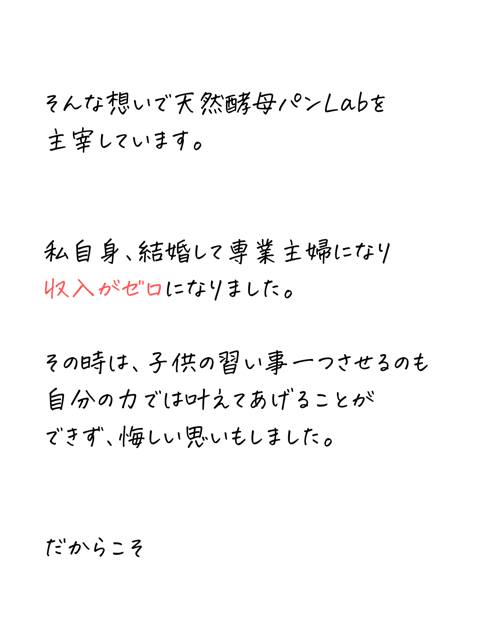 そんな想いで天然酵母パンLabを
主宰しています。
私自身、結婚して専業主婦になり
収入がゼロになりました。
その時は、子供の習い事一つさせるのも
自分の力では叶えてあげることが
できず、悔しい思いもしました。
だからこそ